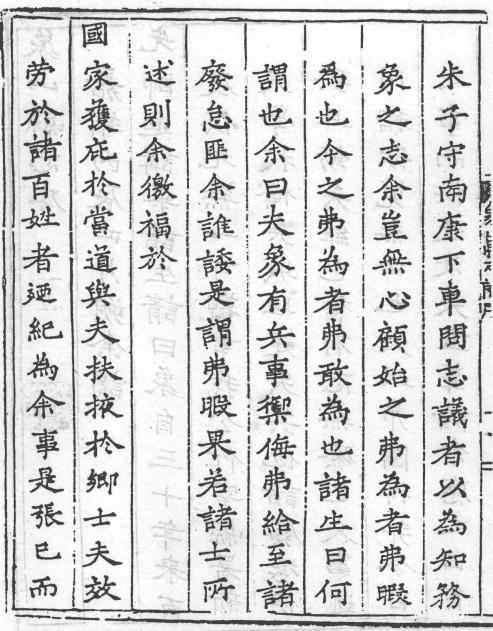 朱子守南康下車問志議者以為知務
象之志余豈無心顧始之弗為者弗暇
為也今之弗為者弗敢為也諸生曰何
謂也余曰夫象有兵事禦侮弗給至諸
廢怠匪余誰諉是謂弗暇果若諸士所
述則余徼福於
國家獲庇於當道與夫扶掖於鄉士夫效
劳於諸百姓者廼紀為余事是張已而